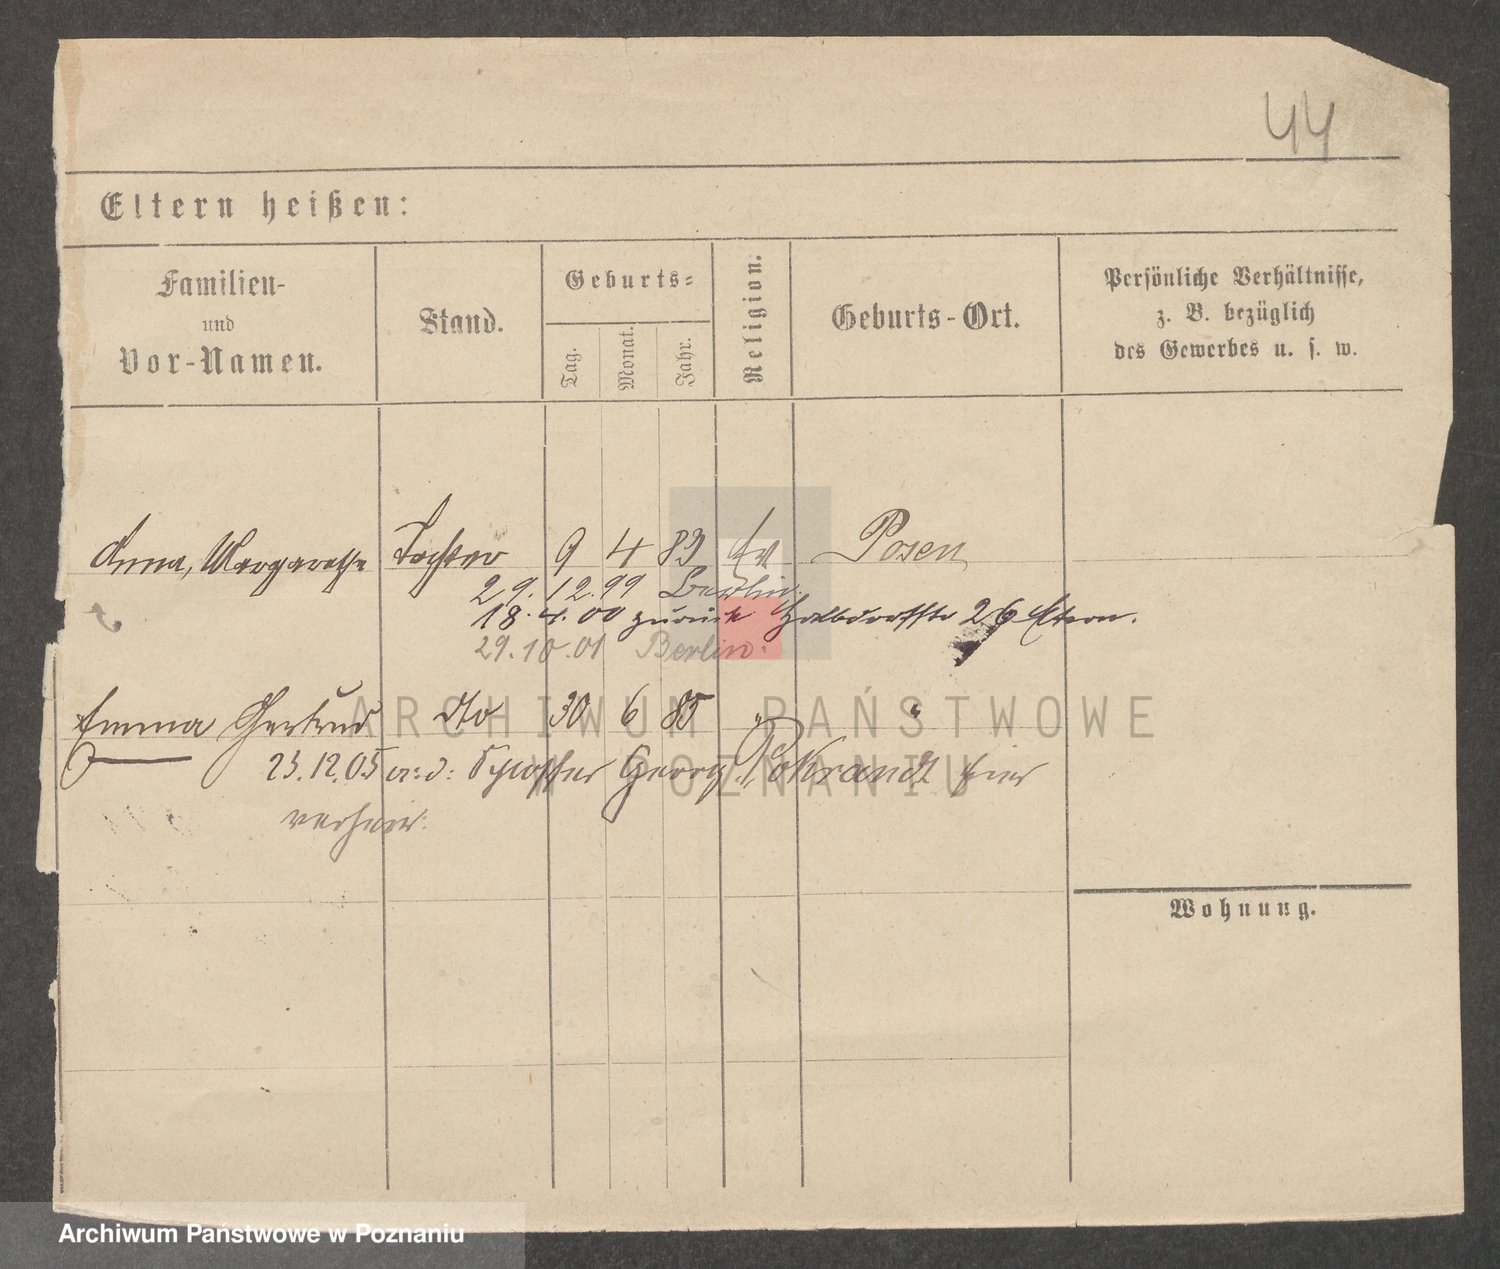 44
Eltern heißen:
Familien-
und
Vor-Namen.
Stand.
Geburts=
Tag.
Monat.
Jahr.
Religion.
Geburts-Ort.
Persönliche Verhältnisse,
z. B. bezüglich
des Gewerbes u. s. w.
Anna, Margarethe Tochter 9 4 83 Ev Posen
29.12.99 Berlin.
18.4.00 zurück Halbdorfstr 26 Eltern.
29.10.01 Berlin.
Emma Gertrud dto 30 6 85 " "
23.12.05 a: d: Schlosser Georg Pokrandt hier
verheir.
Wohnung.
ARCHIWUM PAŃSTWOWE
W POZNANIU
Archiwum Państwowe w Poznaniu